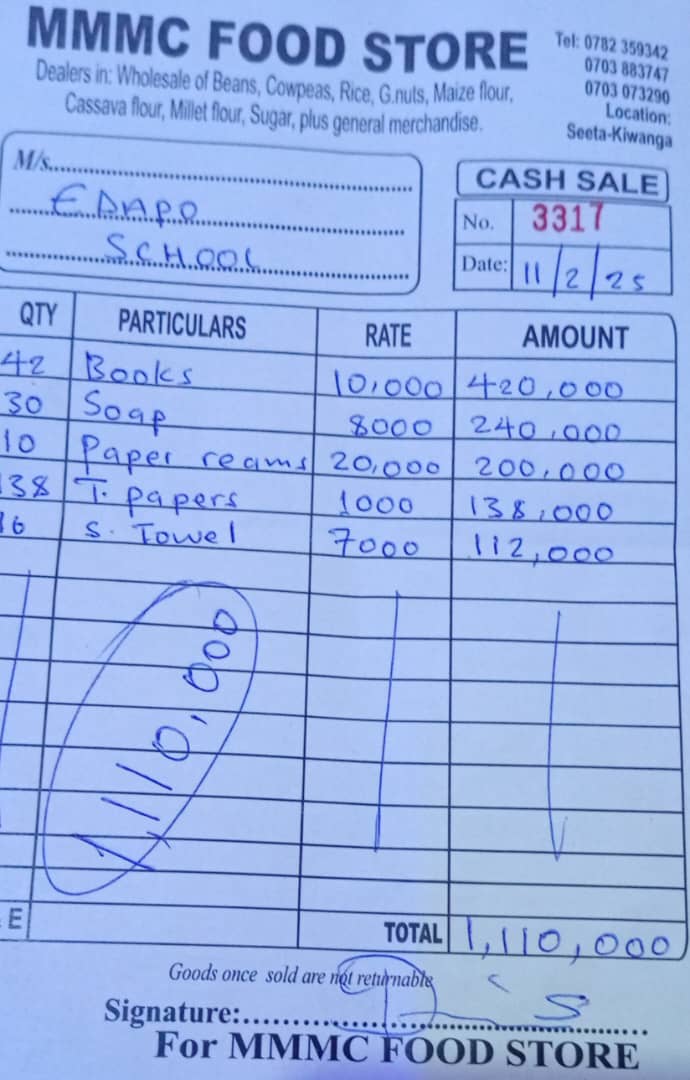 MMMC FOOD STORE
Tel: 0782 359342
0703 883747
0703 073290
Dealers in: Wholesale of Beans, Cowpeas, Rice, G.nuts, Maize flour,
Cassava flour, Millet flour, Sugar, plus general merchandise.
Location:
Seeta-Kiwanga
M/s
EDAPO
SCHOOL
CASH SALE
No. 3317
Date: 11/2/25
QTY PARTICULARS RATE AMOUNT
42 Books 10,000 420,000
30 Soap 8000 240,000
10 Paper reams 20,000 200,000
138 T. papers 1000 138,000
16 S. Towel 7000 112,000
1,110,000
E TOTAL 1,110,000
Goods once sold are not returnable
Signature:
For MMMC FOOD STORE